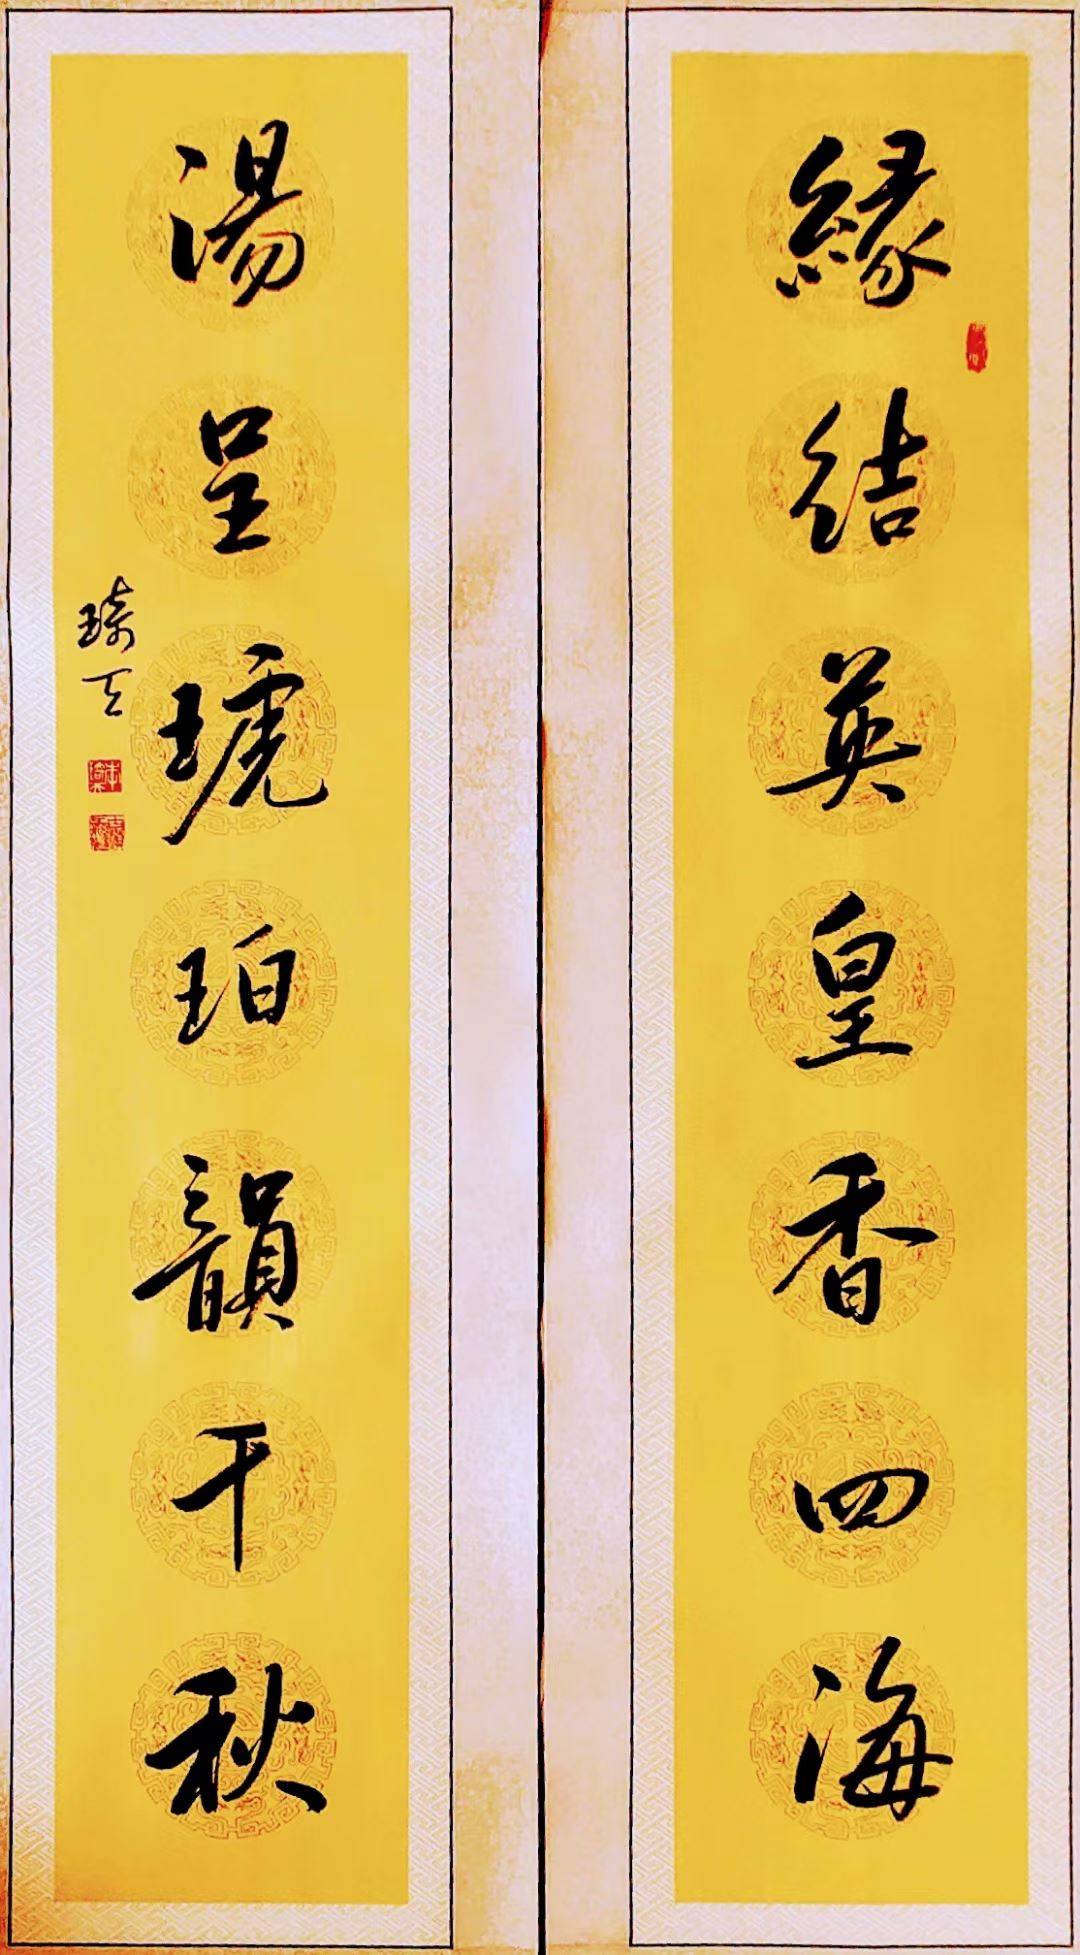 緣結英皇香四海
湯呈琥珀韻千秋
琦天